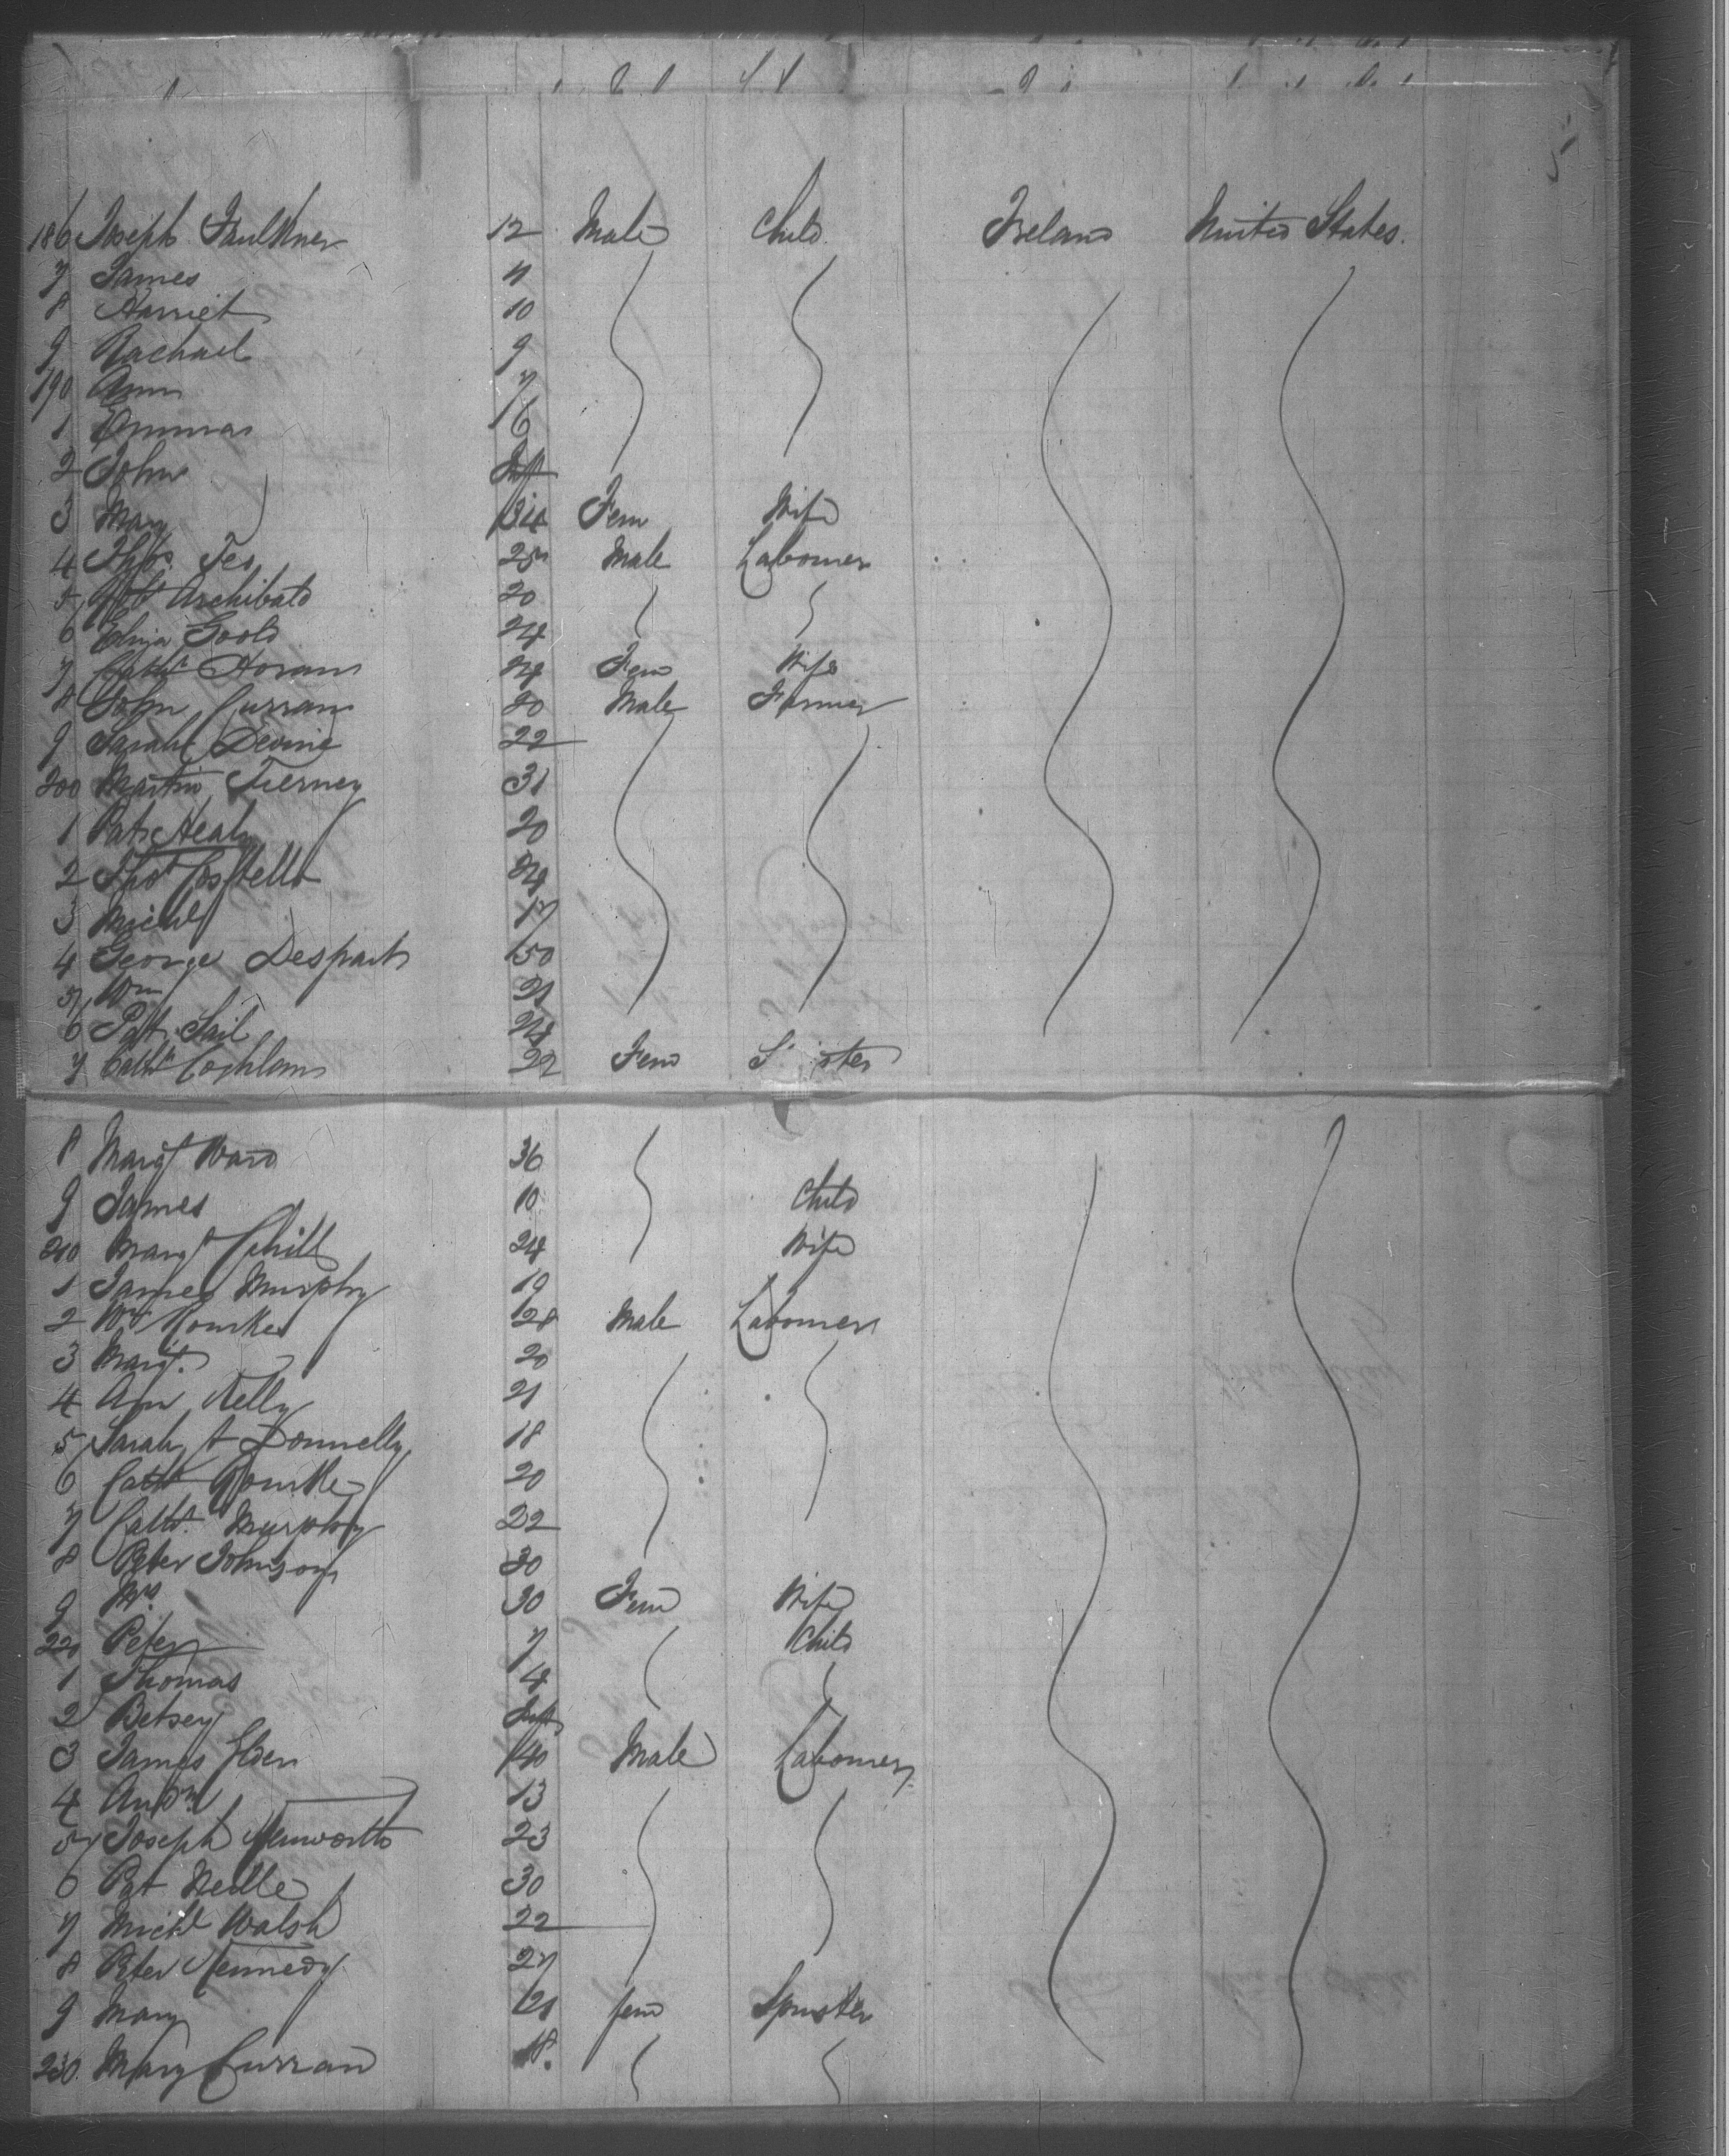 5
186 Joseph Faulkner 12 Male Child Ireland United States.
7 James 11
8 Harriet 10
9 Rachael 9
190 Ann 7
1 Emma 6
2 John Inft
3 Mary 34 Fem Wife
4 Thos. 25 Male Labourer
5 Robt Archibald 20
6 Eliza Goold 24
7 Cathn Horan 24 Fem Wife
8 John Curran 20 Male Farmer
9 Sarah Devine 22
200 Martin Tierney 31
1 Pat Healy 20
2 Thos Costello 24
3 Michl 17
4 George Despart 50
5 Wm 21
6 Pat 24
7 Cathn Coghlan 22 Fem S ster
8 Margt Ward 36
9 James 10 Child
210 Margt Cahill 24 Wife
1 James Murphy 19
2 Wm Rourke 28 Male Labourer
3 Margt. 20
4 Ann Kelly 21
5 Sarah A Donnelly 18
6 Cath Rourke 20
7 Cath. Murphy 22
8 Peter Johnson 30
9 Mrs. 30 Fem Wife
220 Peter 7 Child
1 Thomas 4
2 Betsey Inft
3 James 40 Male Labourer
4 Andw 13
5 Joseph Kenworth 23
6 Pat 30
7 Michl Walsh 22
8 Peter Kennedy 27
9 Mary 21 fem Spinster
230. Mary Curran 18.